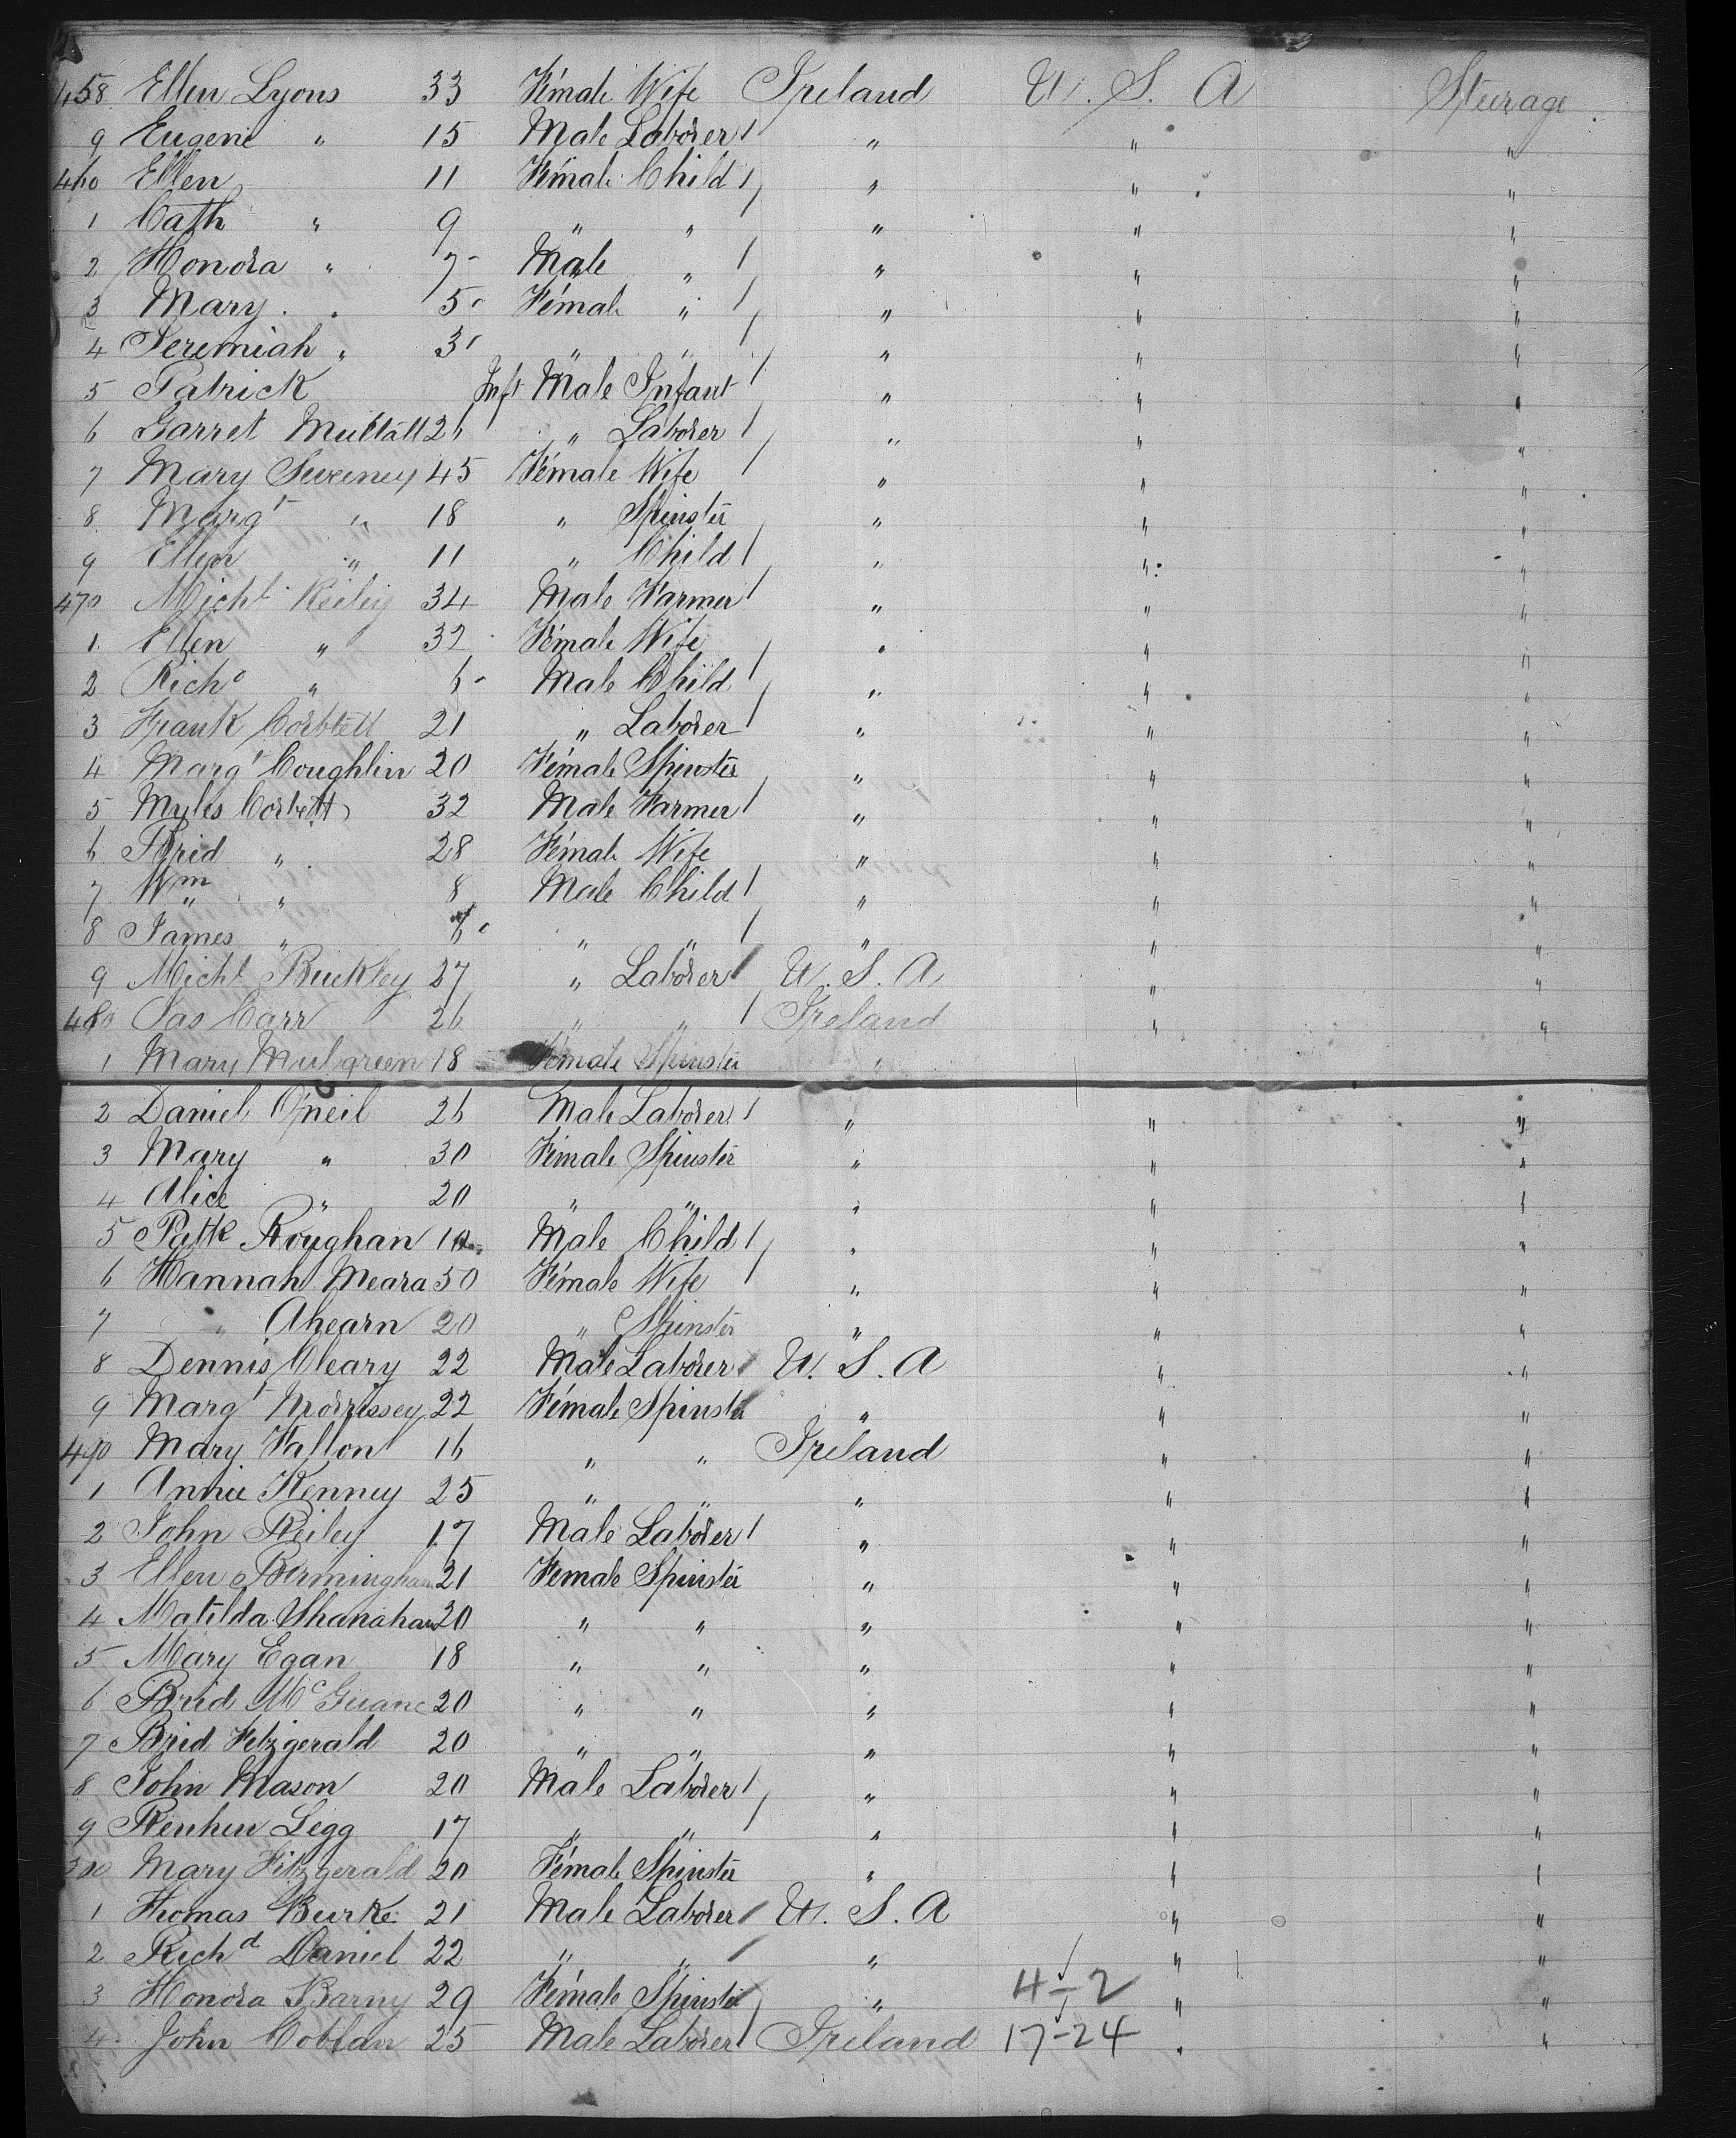 458 Ellen Lyons 33 Female Wife Ireland U. S. A Steerage
9 Eugene " 15 Male Laborer " " "
460 Ellen 11 Female Child " " "
1 Cath " 9 " " " " "
2 Honora " 7 Male " " " "
3 Mary " 5 Female " " " "
4 Jeremiah " 3 " " " " "
5 Patrick Inft Male Infant " " "
6 Garret 26 " Laborer " " "
7 Mary Sweeney 45 Female Wife " " "
8 Margt " 18 " Spinster " " "
9 Ellen " 11 " Child " " "
470 Michl Reiley 34 Male Farmer " " "
1 Ellen " 32 Female Wife " " "
2 Richd " 6 Male Child " " "
3 Frank Corbett 21 " Laborer " " "
4 Margt Coughlin 20 Female Spinster " " "
5 Myles Corbett 32 Male Farmer " " "
6 Brid " 28 Female Wife " " "
7 Wm " 8 Male Child " " "
8 James " " " " " "
9 Michl Buckley 27 " Laborer U. S. A " "
480 Jas Carr 26 " " Ireland " "
1 Mary Mulgreen 18 Female Spinster "
2 Daniel O'neil 26 Male Laborer " " "
3 Mary " 30 Female Spinster " " "
4 Alice " 20 " " " " "
5 Patk Roughan 10 Male Child " " "
6 Hannah Meara 50 Female Wife " " "
7 " Ahearn 20 " Spinster " " "
8 Dennis Cleary 22 Male Laborer U. S. A " "
9 Margt Morrissey 22 Female Spinster " " "
490 Mary Fallon 16 " " Ireland " "
1 Annie Kenney 25 " " " " "
2 John Reiley 17 Male Laborer " " "
3 Ellen Birmingham 21 Female Spinster " " "
4 Matilda Shanahan 20 " " " " "
5 Mary Egan 18 " " " " "
6 Brid McGuane 20 " " " " "
7 Brid Fitzgerald 20 " " " " "
8 John Mason 20 Male Laborer " " "
9 Legg 17 " " " " "
500 Mary Fitzgerald 20 Female Spinster " " "
1 Thomas Burke 21 Male Laborer U. S. A " "
2 Richd Daniel 22 " " " " "
3 Honora Barny 29 Female Spinster " 4-2 " "
4 John Coblan 25 Male Laborer Ireland 17-24 " "